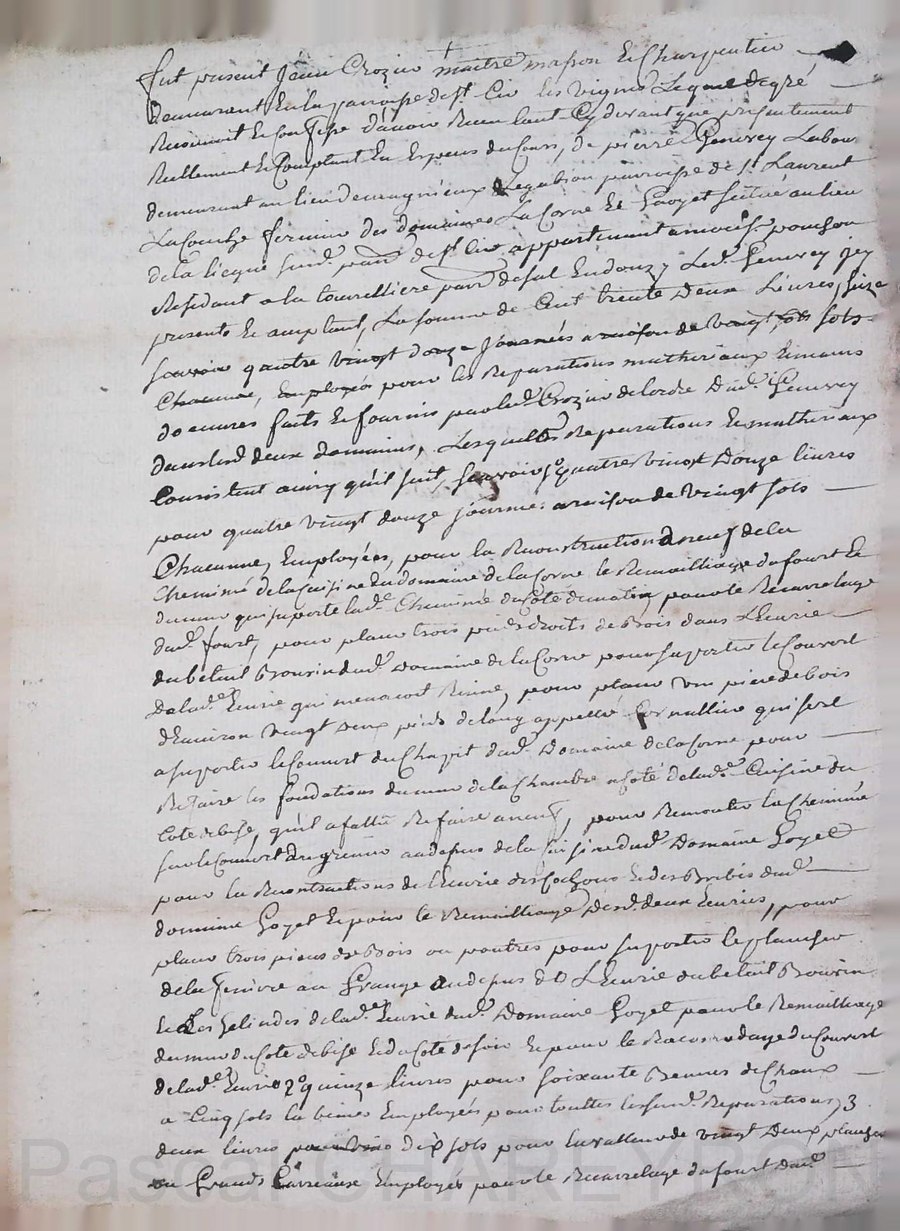 fut present Jean Crozier maitre masson et Charpentier
demeurant en la parroisse de st. Cir les vignes Lequel de gré
Reconnoit et Confesse d'avoir Receu tant Cy devant que présentement
Reellement et Comptant en Espesses du Cours, de pierre Genevey Labour
demeurant au lieu de magnieux Legabion parroisse de st. Laurent
La Conche fermier des domaines La Corne et Goyet scitué au lieu
de la susd. parr. de st. Cir appartenant a
Residant a la tourrettiere parr. de sal en donzy Led. Genevey icy
presents et acceptant, La somme de Cent trente Deux Livres, seize
Scavoir quatre vingt douze journées a raison de vingt sols
Chacune, Employés pour les Reparations matheriaux et mains
doeuvres faits et fournis par led. Crozier de lordre dud. Genevey
dans lesd. deux domaines, Lesquelles Reparations et matheriaux
Consistent ainsy quil suit, Scavoir 1o. quatre vingt Douze livres
pour quatre vingt douze journées a raison de vingt sols
Chacunne, Employées, pour la Reconstruction a neuf de la
Cheminé de la Cuisine du domaine de la Corne le Remailliage du fourt et
du mur qui suporte lad. Cheminé du Coté du matin, pour le Recarrelage
dud. fourt, pour placer trois pieds droits de Bois dans L'Ecurie
du betail Bouvin dud. Domaine de la Corne pour suporter le Couvert
de lad. Ecurie qui menacoit Ruine, pour placer une piece de bois
d'Environ vingt Deux pieds de long appellé qui sert
a suporter le Couvert du Chapit dud. Domaine de la Corne pour
Refaire les fondations du mur de la Chambre a Coté de lad. Cuisine du
Coté de bise, qu'il a fallu Refaire a neuf, pour Remonter la Cheminée
sur le Couvert du grenier au depus de la Cuisine dud. Domaine Goyet
pour la Reconstructions de l'Ecurie des Cochons et des Brebis dud.
domaine Goyet et pour le Remailliage Desd. deux Ecuries, pour
placer trois pieces de Bois ou poutres pour suporter le plancher
de la feniere ou Grange au depus de L'Ecurie du betail Bouvin
et Les de lad. Ecurie dud. Domaine Goyet pour le Remailliage
du mur du Coté de bise et du Coté de soir et pour le Racomodage du Couvert
de lad. Ecurie 2o. quinze livres pour soixante Bennes de Chaux
a Cinq sols la benne Employés pour touttes lesd. Reparations, 3
deux livres dix sols pour la valleur de vingt Deux planches
ou Grands Carreaux Employés pour le Recarrelage du fourt dud.
Pascal CHARLEYRON